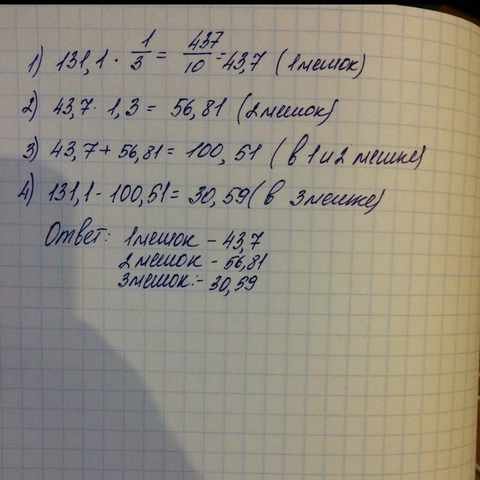 1) 131,1 · 1/3 = 437/10 = 43,7 (1 мешок)
2) 43,7 · 1,3 = 56,81 (2 мешок)
3) 43,7 + 56,81 = 100,51 (в 1 и 2 мешке)
4) 131,1 - 100,51 = 30,59 (в 3 мешке)
Ответ: 1 мешок - 43,7
2 мешок - 56,81
3 мешок:- 30,59